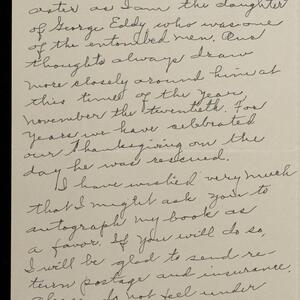 aster as I am the daughter
of George Eddy who was one
of the entombed men. Our
thoughts always draw
more closely around him at
this time of the year,
november the twentieth. For
years we have celebrated
our Thanksgiving on the
day he was rescued.
I have wished very much
that I might ask you to
autograph my book as
a favor. If you will do so,
I will be glad to send re-
turn postage and insurance.
Please do not feel under